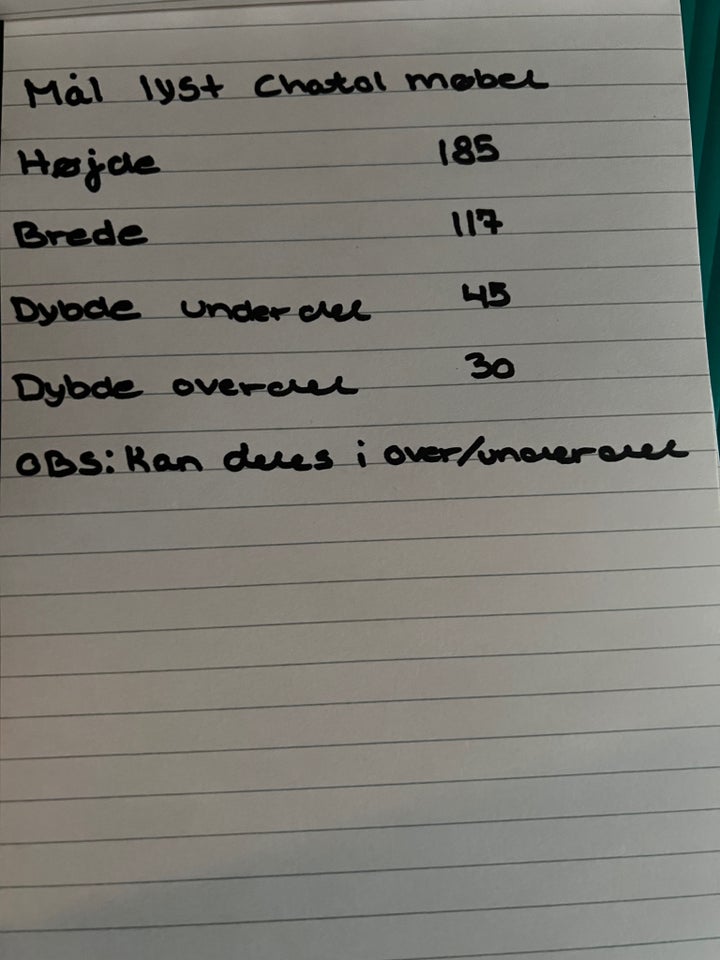 Mål lyst Chatol møbel
Højde 185
Brede 117
Dybde underdel 45
Dybde overdel 30
OBS: Kan deles i over/underdel